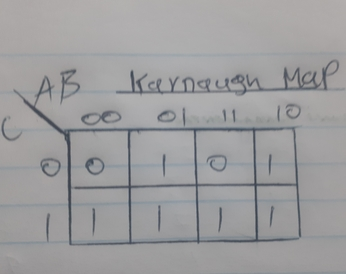 AB Karnaugh Map
C 00 01 11 10
0 0 1 0 1
1 1 1 1 1